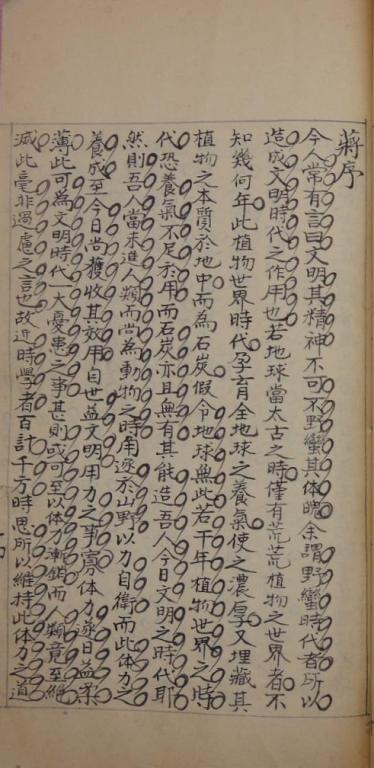 蔣序
今人常有言曰文明其精神不可不野蠻其體魄余謂野蠻時代者所以
造成文明時代之作用也若地球當太古之時僅有荒荒植物之世界者不
知幾何年此植物世界時代孕育全地球之養氣使之濃厚又埋藏其
植物之本質於地中而為石炭假令地球無此若干年植物世界之時
代恐養氣不足於用而石炭亦且無有其能造吾人今日文明之時代耶
然則吾人當未進人類而尚為動物之時角逐於山野以力自衛而此體力之
養成至今日尚獲收其效用自世益文明用力之事寡體力逐日益柔
薄此可為文明時代一大憂患之事甚則或可至以體力漸銷而人類竟至絕
滅此毫非過慮之言也故近時學者百計千方時思所以維持此體力之道